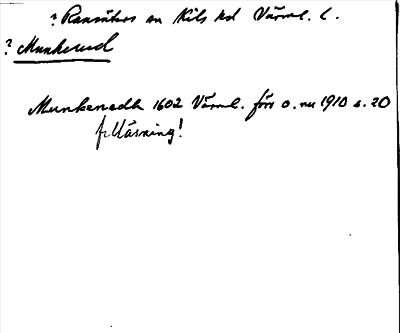 ? Ransäters sn Kils hd Värml. l.
? Munkerud
Munkenedh 1602 Värml. förr o. nu 1910 s. 20
felläsning!